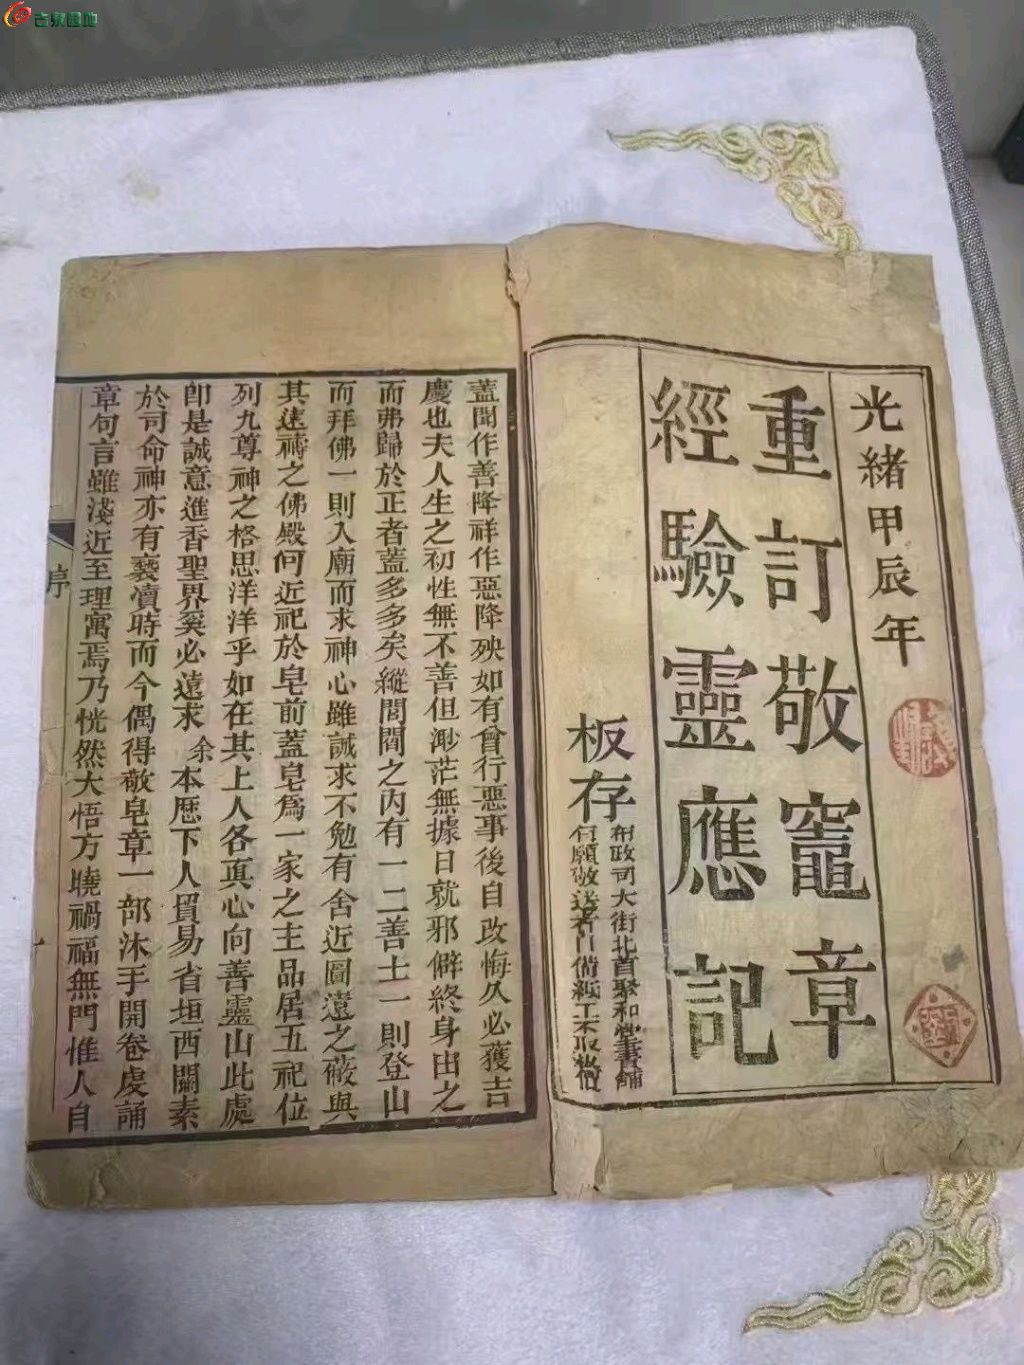 古泉園地
光緒甲辰年
重訂敬竈章
經驗靈應記
板存
布政司大街北首聚和堂書舖
有願敬送者自備紙工不取板價
蓋聞作善降祥作惡降殃如有曾行惡事後自改悔久必獲吉
慶也夫人生之初性無不善但渺茫無據日就邪僻終身出之
而弗歸於正者蓋多多矣縱閭閻之內有一二善士一則登山
而拜佛一則入廟而求神心雖誠求不勉有舍近圖遠之蔽與
其遠禱之佛殿何近祀於皂前蓋皂爲一家之主品居五祀位
列九尊神之格思洋洋乎如在其上人各眞心向善靈山此處
卽是誠意進香聖界奚必遠求余本歷下人貿易省垣西關素
於司命神亦有褻瀆時而今偶得敬皂章一部沐手開卷虔誦
章句言雖淺近至理寓焉乃恍然大悟方曉禍福無門惟人自
序